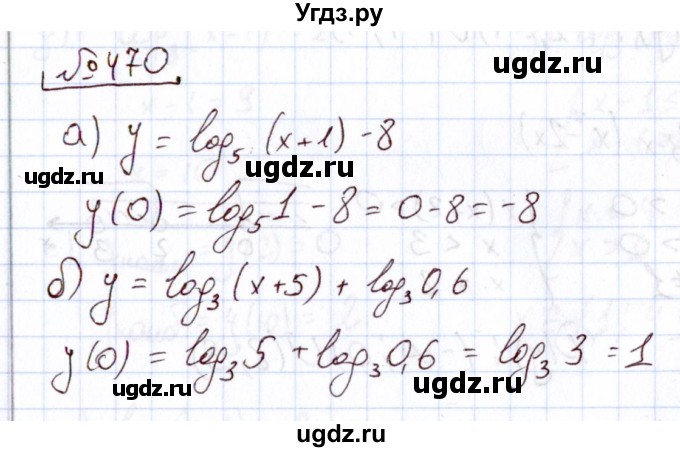 Угдз.ру
№470
ugdz.ru
а) y = log₅ (x+1) - 8
ugdz.ru
ugdz.ru
y(0) = log₅1 - 8 = 0 - 8 = -8
ugdz.ru
б) y = log₃ (x+5) + log₃ 0,6
y(0) = log₃ 5 + log₃ 0,6 = log₃ 3 = 1
ugdz.ru
ugdz.ru
ugdz.ru